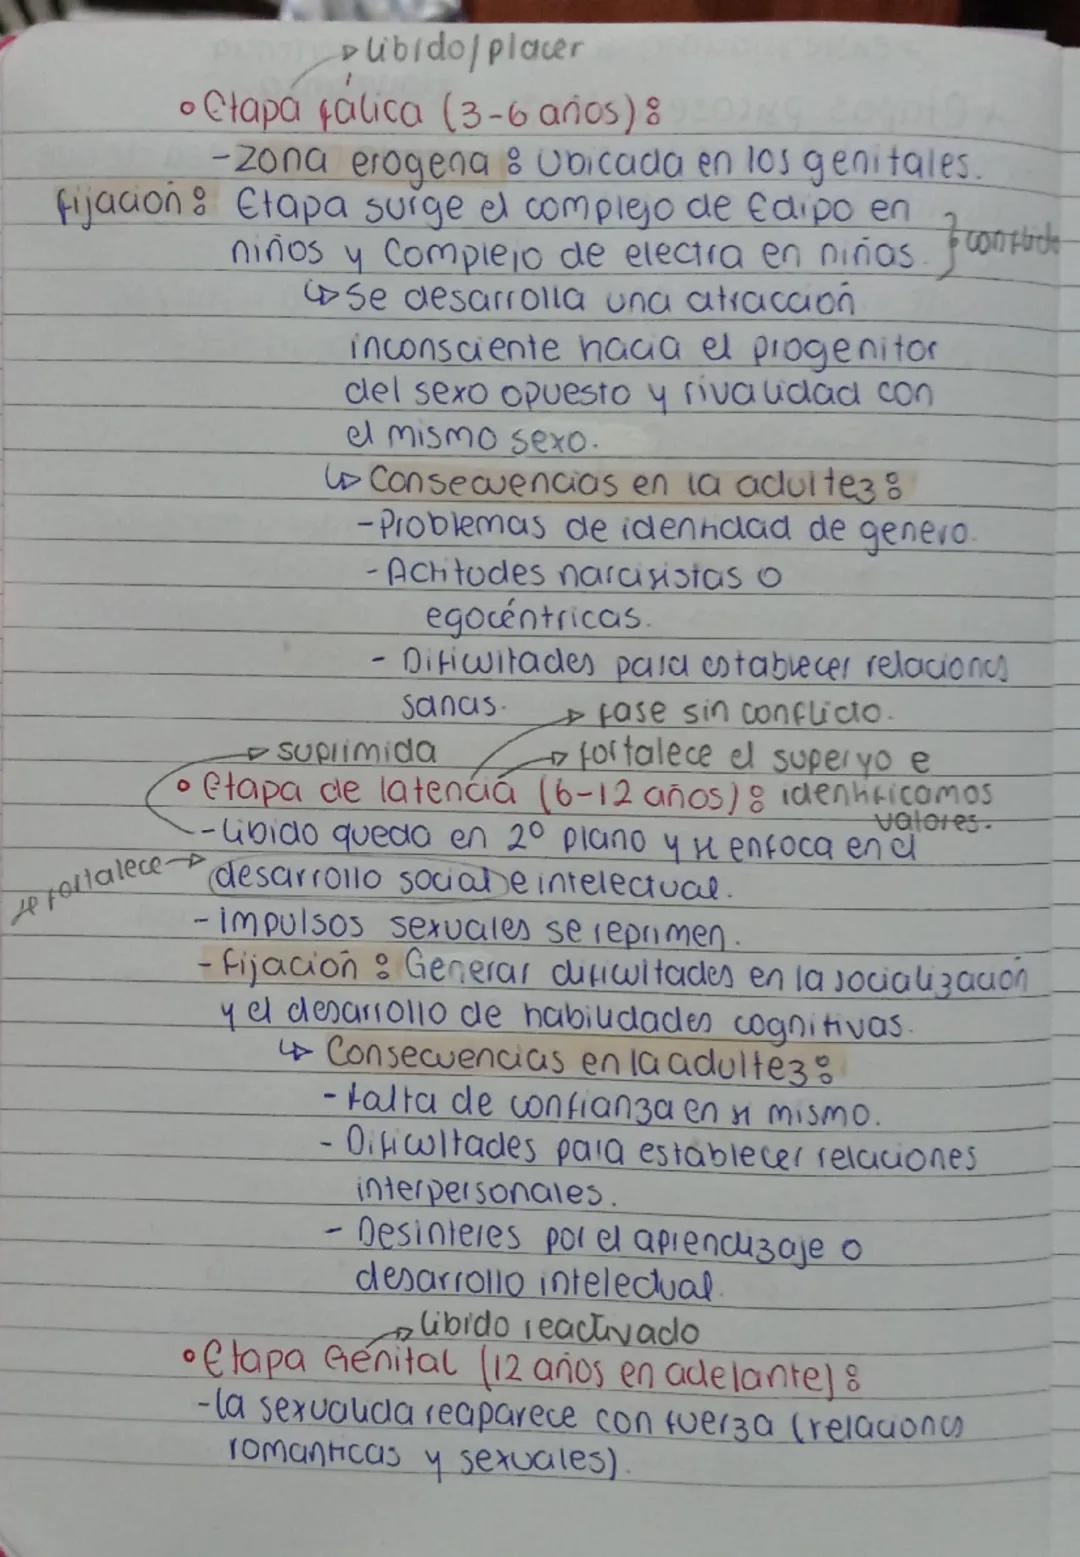 libido/placer
• Etapa fálica (3-6 años):
- Zona erogena: Ubicada en los genitales.
fijación: Etapa surge el complejo de Edipo en
niños y Complejo de electra en niñas. } conflicto
↳ Se desarrolla una atracción
inconsciente hacia el progenitor
del sexo opuesto y rivalidad con
el mismo sexo.
↳ Consecuencias en la adultez:
- Problemas de identidad de genero.
- Actitudes narcisistas o
egocéntricas.
- Dificultades para establecer relaciones
sanas.
→ fase sin conflicto.
→ suprimida
→ fortalece el superyo e
• Etapa de latencia (6-12 años): identificamos
valores.
- Libido queda en 2º plano y se enfoca en el
se fortalece → desarrollo social e intelectual.
- Impulsos sexuales se reprimen.
- fijación: Generar dificultades en la socialización
y el desarrollo de habilidades cognitivas.
↳ Consecuencias en la adultez:
- falta de confianza en si mismo.
- Dificultades para establecer relaciones
interpersonales.
- Desinteres por el aprendizaje o
desarrollo intelectual.
→ libido reactivado
• Etapa Genital (12 años en adelante):
- la sexualida reaparece con fuerza (relaciones
romanticas y sexuales).